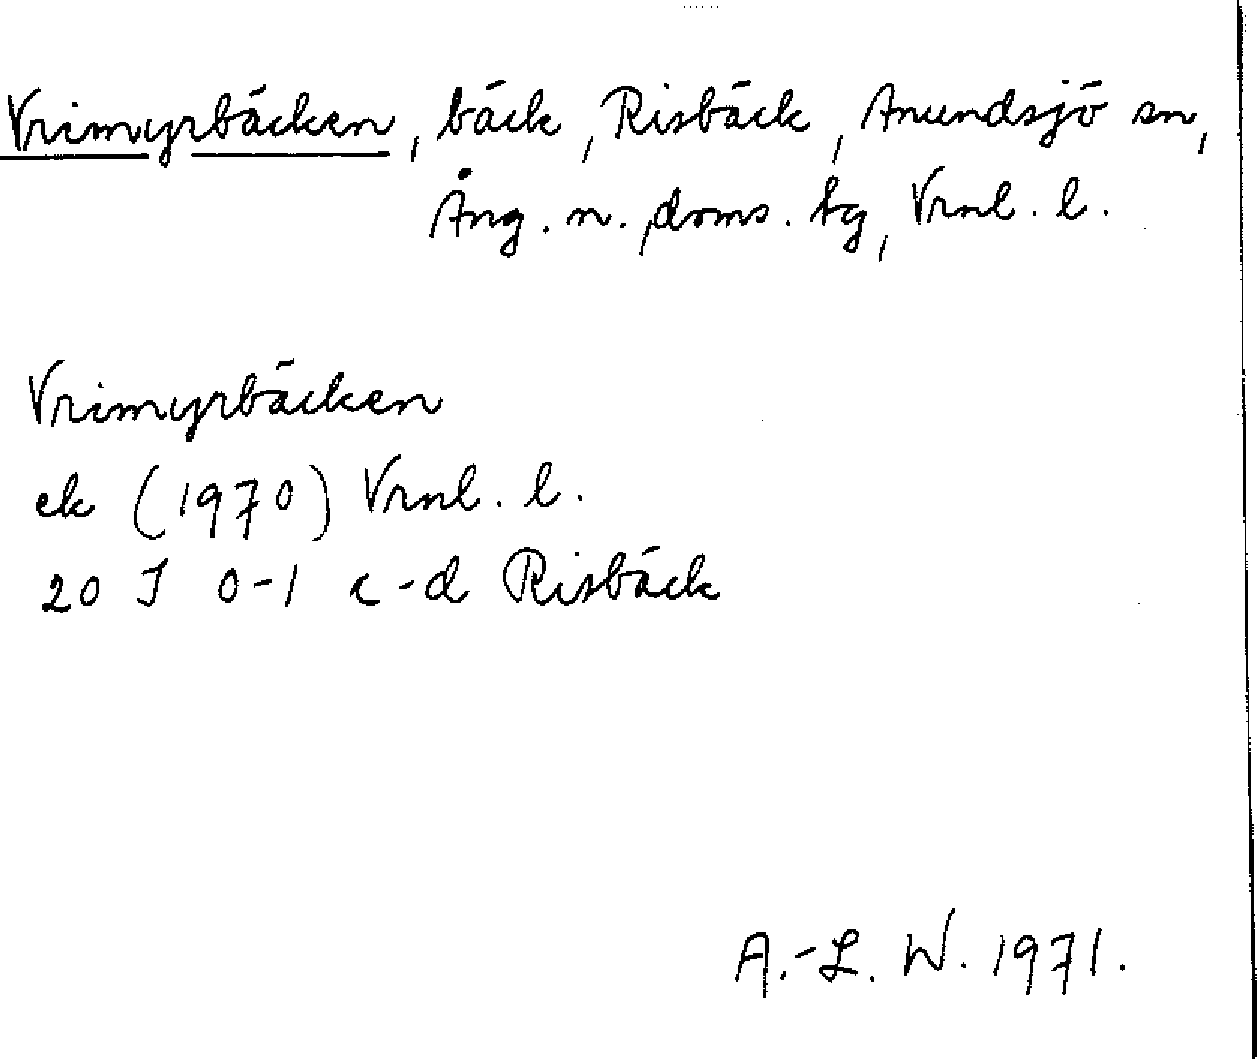 Vrimyrbäcken, bäck, Risbäck, Anundsjö sn,
Ång. n. doms. tg, Vrnl. l.
Vrimyrbäcken
ek (1970) Vrnl. l.
20 J 0-1 c-d Risbäck
A.-L. W. 1971.